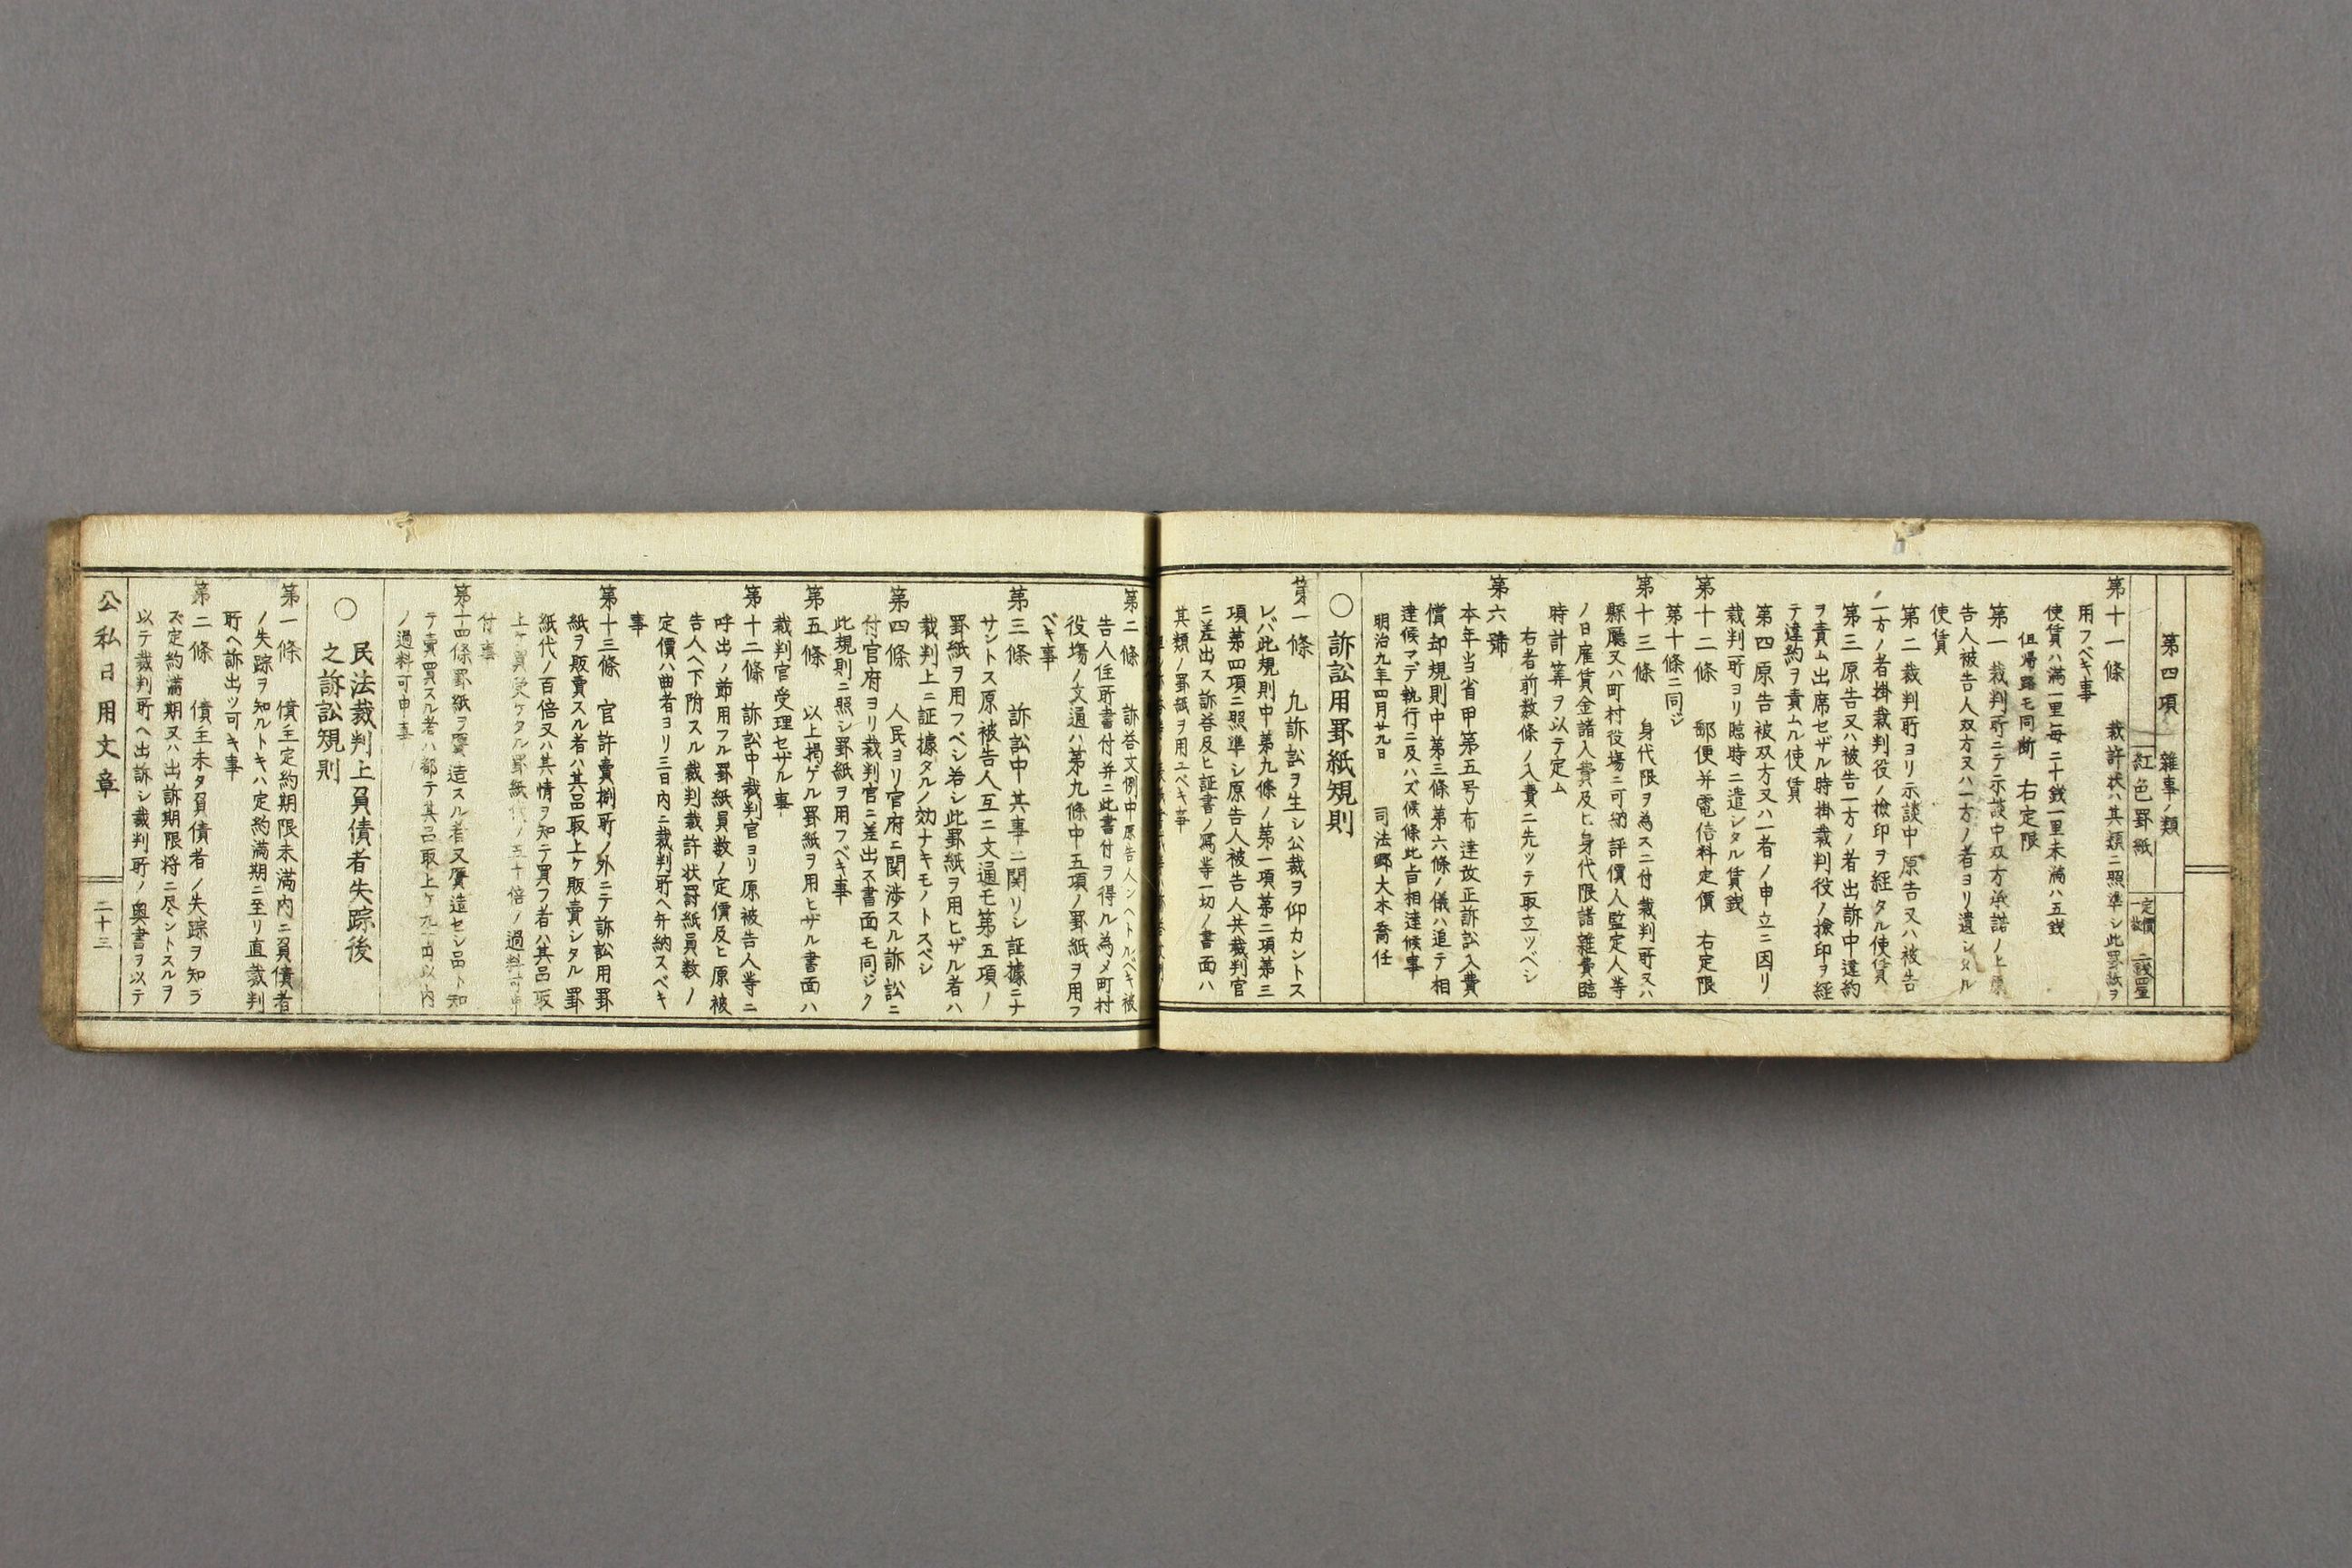 第四項　雜事ノ類
紅色罫紙　定價一枚　二錢四厘
第十一條　裁許状ハ其類ニ照準シ此罫紙ヲ
用フベキ事
使賃ハ満一里毎ニ十銭一里未満ハ五銭
但帰路モ同断　右定限
第一　裁判所ニテ示談中双方承諾ノ上原
告人被告人双方又ハ一方ノ者ヨリ遣シタル
使賃
第二　裁判所ヨリ示談中原告又ハ被告
一方ノ者掛裁判役ノ檢印ヲ経タル使賃
第三　原告又ハ被告一方ノ者出訴中違約
ヲ責ム出席セザル時掛裁判役ノ撿印ヲ経
テ違約ヲ責ムル使賃
第四　原告被双方又ハ一者ノ申立ニ因リ
裁判所ヨリ臨時ニ遣シタル賃銭
第十二條　郵便并電信料定價　右定限
第十條ニ同ジ
第十三條　身代限ヲ為スニ付裁判所又ハ
縣廳又ハ町村役場ニ可納評價人監定人等
ノ日雇賃金諸入費及ヒ身代限諸雜費臨
時計筭ヲ以テ定ム
右者前数條ノ入費ニ先ッテ取立ツベシ
第六號
本年当省甲第五号布達改正訴訟入費
償却規則中第三條第六條ノ儀ハ追テ相
達候マデ執行ニ及ハズ候條此旨相達候事
明治九年四月廿九日　司法卿大木喬任
○訴訟用罫紙規則
第一條　凡訴訟ヲ生シ公裁ヲ仰カントス
レバ此規則中第九條ノ第一項第二項第三
項第四項ニ照準シ原告人被告人共裁判官
ニ差出ス訴答及ヒ証書ノ寫等一切ノ書面ハ
其類ノ罫紙ヲ用ユベキ事
第二條　訴答文例中原告人ンヘトルベキ被
告人住所書付并ニ此書付ヲ得ル為メ町村
役塲ノ文通ハ第九條中五項ノ罫紙ヲ用フ
ベキ事
第三條　訴訟中其事ニ関リシ証據ニナ
サントス原被告人互ニ文通モ第五項ノ
罫紙ヲ用フベシ若シ此罫紙ヲ用ヒザル者ハ
裁判上ニ証據タルノ効ナキモノトスベシ
第四條　人民ヨリ官府ニ関渉スル訴訟ニ
付官府ヨリ裁判官ニ差出ス書面モ同ジク
此規則ニ照シ罫紙ヲ用フベキ事
第五條　以上掲ゲル罫紙ヲ用ヒザル書面ハ
裁判官受理セザル事
第十二條　訴訟中裁判官ヨリ原被告人等ニ
呼出ノ節用フル罫紙員数ノ定價及ヒ原被
告人ヘ下附スル裁判裁許状罫紙員数ノ
定價ハ曲者ヨリ三日内ニ裁判所ヘ弁納スベキ
事
第十三條　官許賣捌所ノ外ニテ訴訟用罫
紙ヲ販賣スル者ハ其品取上ケ販賣シタル罫
紙代ノ百倍又ハ其情ヲ知テ買フ者ハ其品取
上ケ買受ケタル罫紙代ノ五十倍ノ過料可申
付事
第十四條罫紙ヲ贋造スル者又贋造セシ品ト知
テ賣買スル者ハ都テ其品取上ケ九百円以内
ノ過料可申事
○民法裁判上負債者失踪後
之訴訟規則
第一條　債主定約期限未満内ニ負債者
ノ失踪ヲ知ルトキハ定約満期ニ至リ直裁判
所ヘ訴出ツ可キ事
第二條　債主未タ負債者ノ失踪ヲ知ラ
ズ定約満期又ハ出訴期限将ニ尽ントスルヲ
以テ裁判所ヘ出訴シ裁判所ノ奥書ヲ以テ
公私日用文章　二十三